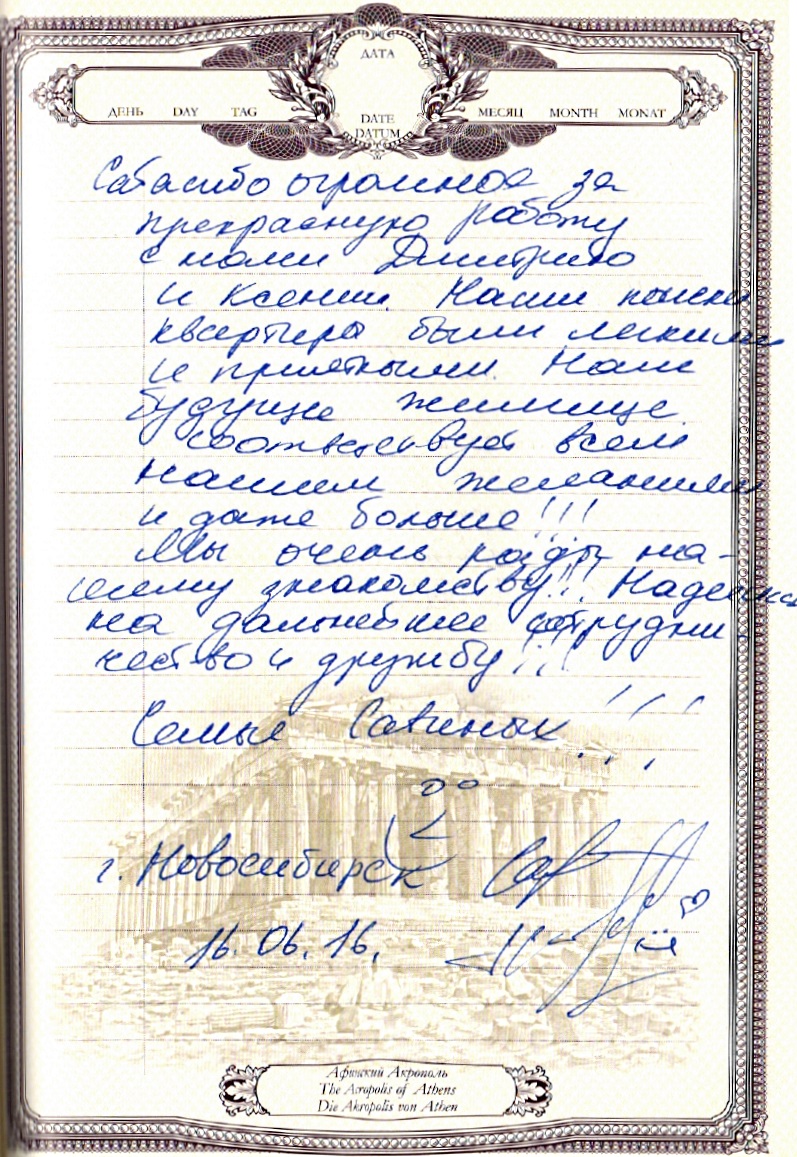 ДАТА
ДЕНЬ DAY TAG
МЕСЯЦ MONTH MONAT
DATE
DATUM
Сабасибо огромное за
прекрасную работу
с нами Дмитрию
и Ксении. Наши поиски
квартиры были легкими
и приятными. Наше
будущие жилище
соответсвует всем
нашим желаниям
и даже больше!!!
Мы очень рады на-
шему знакомству!!! Надеемся
на дальнейшее сотрудни-
чество и дружбу!!!
Семья Савиных!!!
г. Новосибирск
16.06.16.
Афинский Акрополь
The Acropolis of Athens
Die Akropolis von Athen